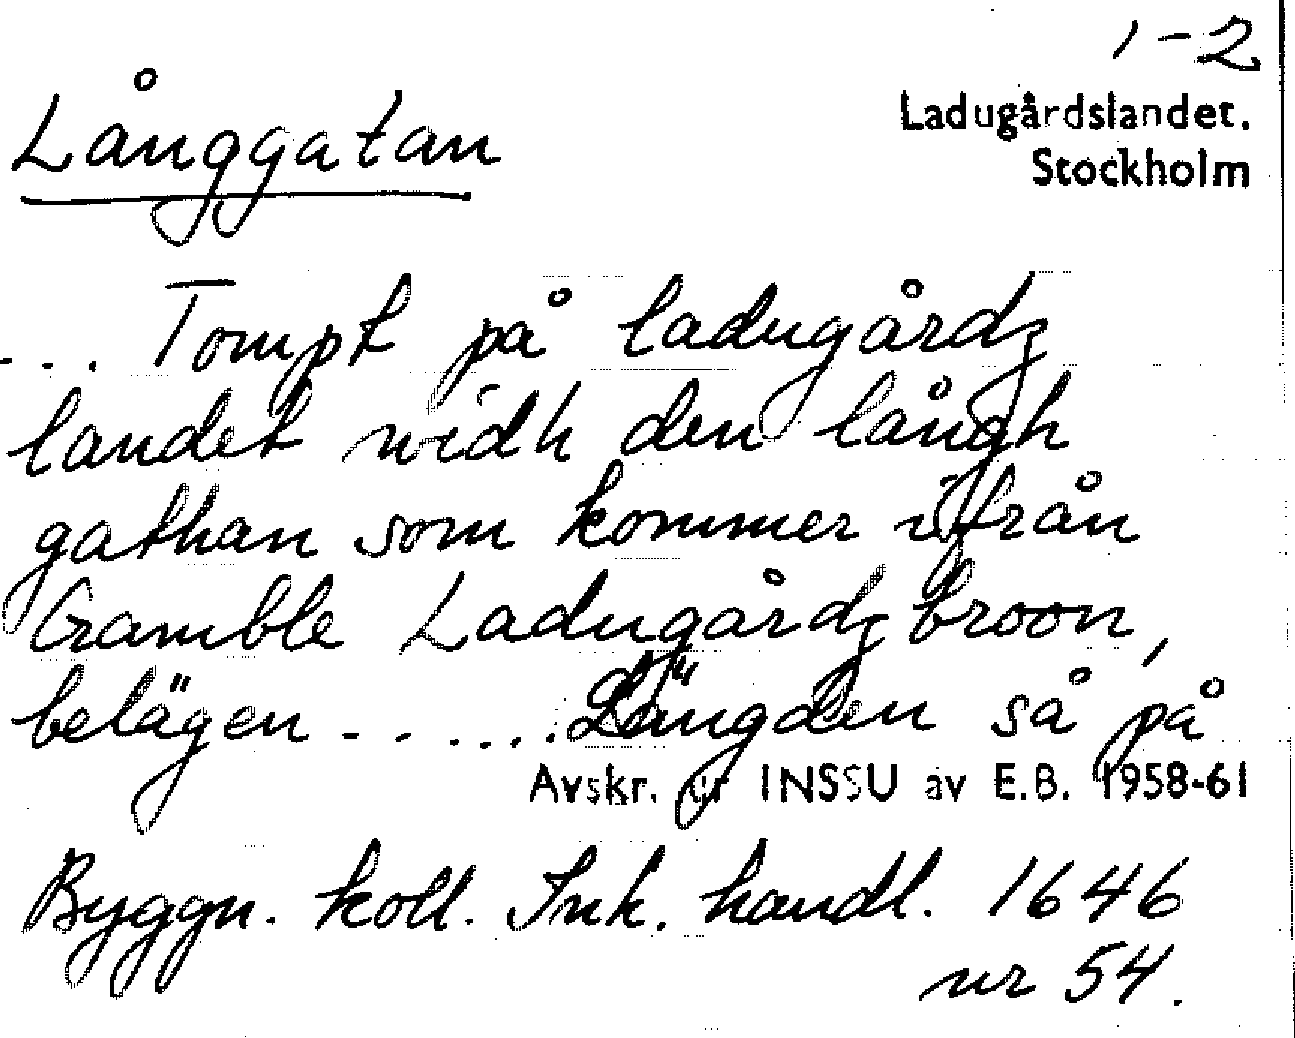 1-2
Långgatan
Ladugårdslandet.
Stockholm
... Tompt på ladugårdz
landet widh den långh
gathan som kommer ifrån
Gramble Ladugårdz broon,
belägen ...... Längden så på
Avskr. ur INSSU av E.B. 1958-61
Byggn. koll. Ink. handl. 1646
nr 54.